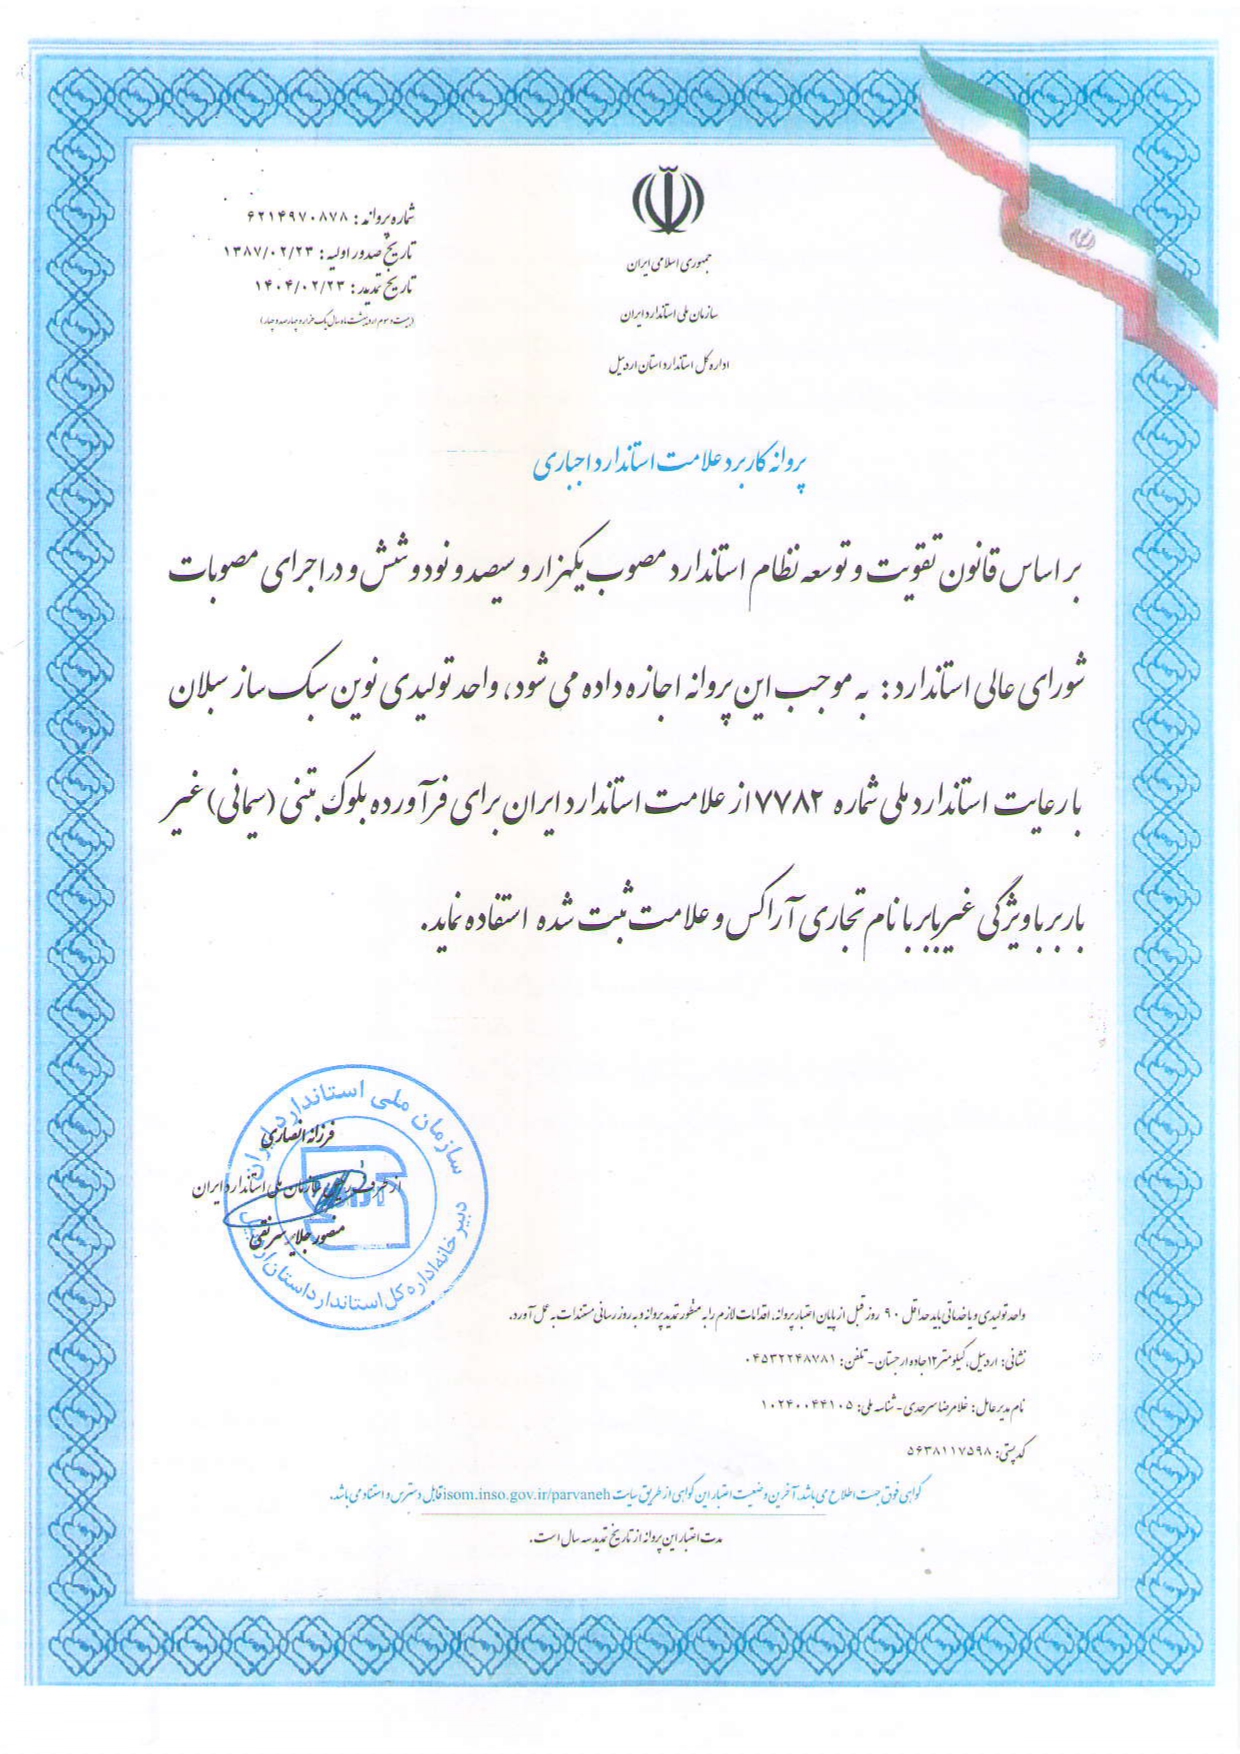 جمهوری اسلامی ایران
سازمان ملی استاندارد ایران
اداره کل استاندارد استان اردبیل
شماره پروانه : ۶۲۱۴۹۷۰۸۷۸
تاریخ صدور اولیه : ۱۳۸۷/۰۲/۲۳
تاریخ تمدید : ۱۴۰۴/۰۲/۲۳
(بیست و سوم اردیبهشت ماه سال یک هزار و چهارصد و چهار)
پروانه کاربرد علامت استاندارد اجباری
بر اساس قانون تقویت و توسعه نظام استاندارد مصوب یکهزار و سیصد و نود و شش و در اجرای مصوبات
شورای عالی استاندارد : به موجب این پروانه اجازه داده می شود، واحد تولیدی نوین سبک ساز سبلان
با رعایت استاندارد ملی شماره ۷۷۸۲ از علامت استاندارد ایران برای فرآورده بلوک بتنی (سیمانی) غیر
باربر با ویژگی غیرباربر با نام تجاری آراکس و علامت ثبت شده استفاده نماید.
سازمان ملی استاندارد ایران
دبیرخانه اداره کل استاندارد استان اردبیل
فرزانه انصاری
از طرف رئیس سازمان ملی استاندارد ایران
منصور جلایر سرنقی
واحد تولیدی و یا خدماتی باید حداقل ۹۰ روز قبل از پایان اعتبار پروانه، اقدامات لازم را به منظور تمدید پروانه و به روز رسانی مستندات به عمل آورد.
نشانی: اردبیل، کیلومتر ۱۲ جاده ارجستان - تلفن: ۰۴۵۳۲۲۴۸۷۸۱
نام مدیرعامل: غلامرضا سرحدی - شناسه ملی: ۱۰۲۴۰۰۴۴۱۰۵
کدپستی: ۵۶۳۸۱۱۷۵۹۸
گواهی فوق جهت اطلاع می باشد. آخرین وضعیت اعتبار این گواهی از طریق سایت isom.inso.gov.ir/parvaneh قابل دسترس و استناد می باشد.
مدت اعتبار این پروانه از تاریخ تمدید سه سال است.